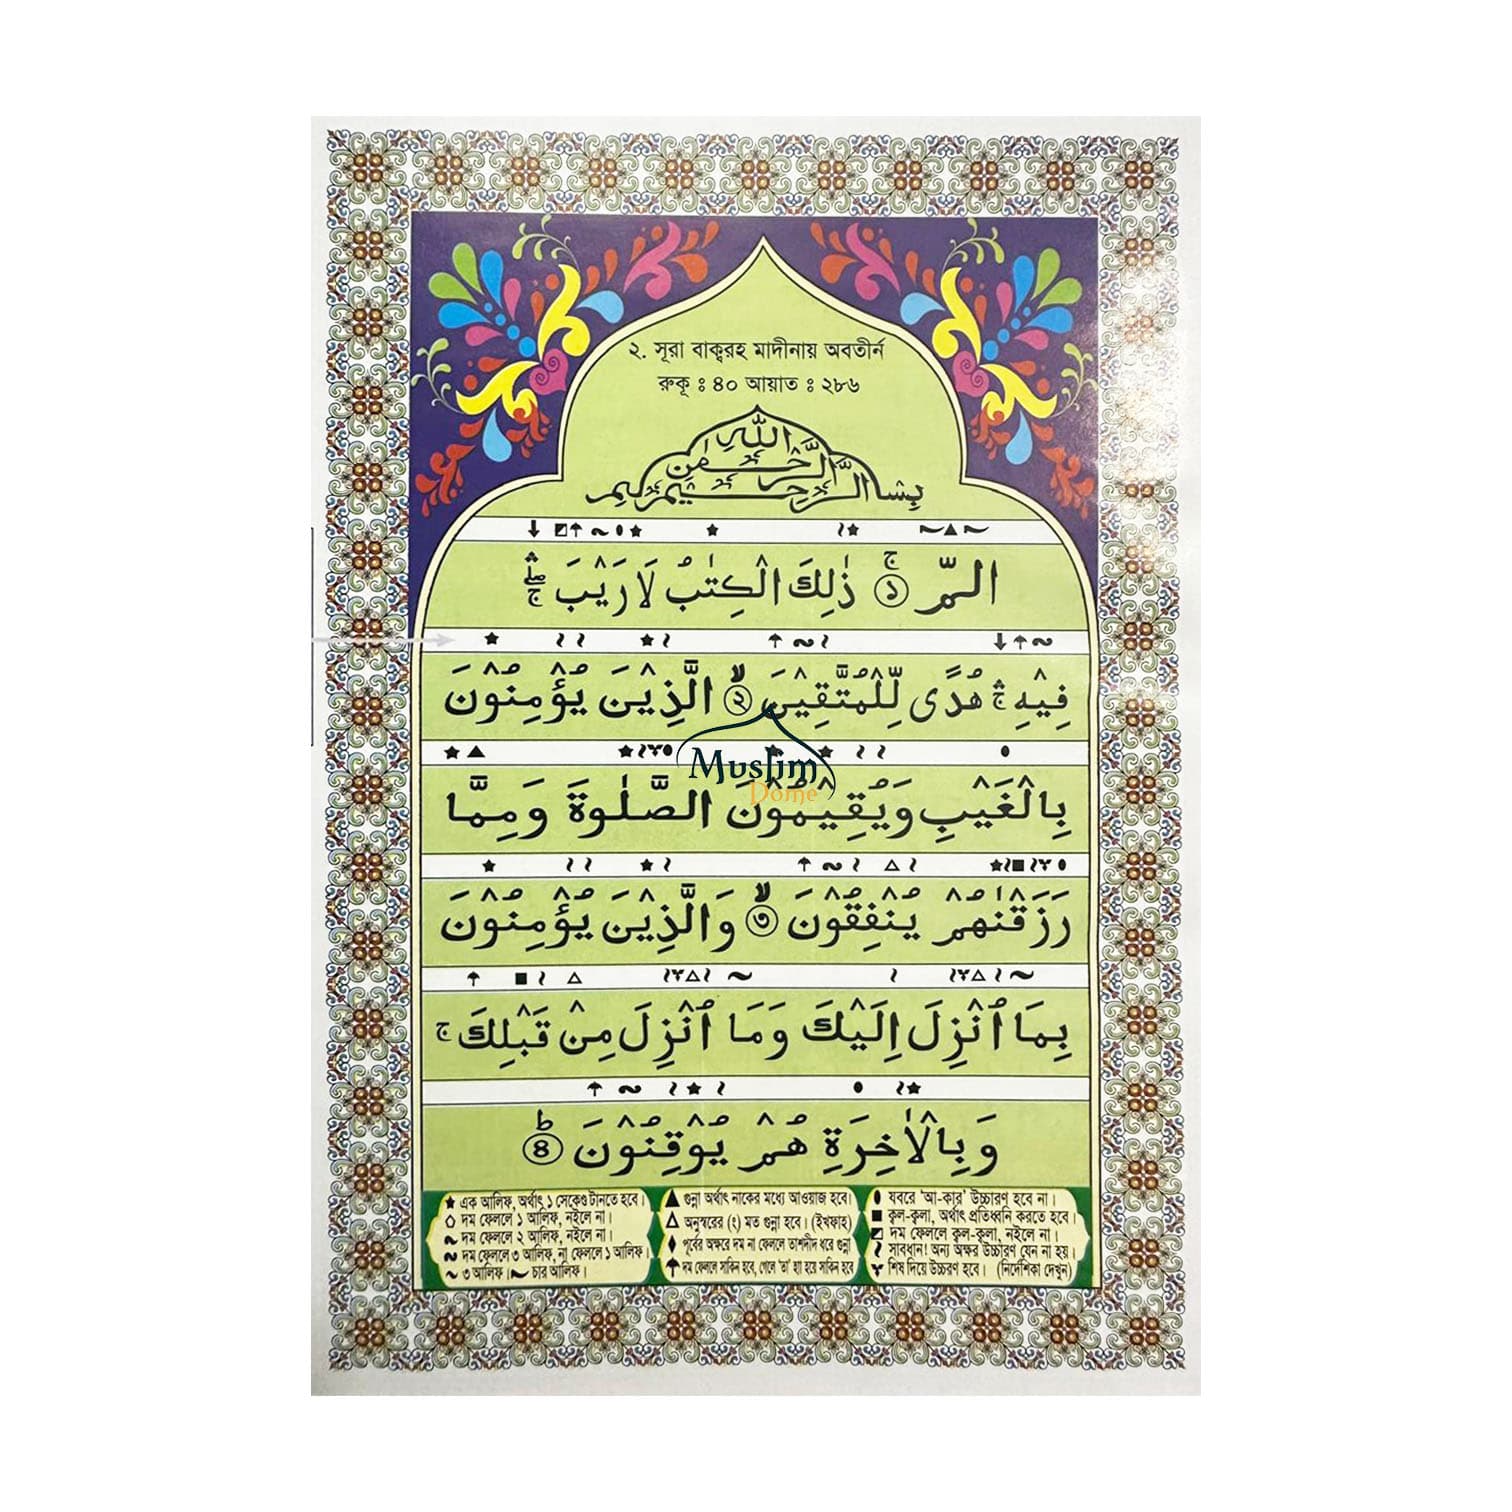 ২. সূরা বাক্বরহ মাদীনায় অবতীর্ন
রুকূ ঃ ৪০ আয়াত ঃ ২৮৬
بِسْمِ اللهِ الرَّحْمٰنِ الرَّحِيْمِ
الٓمّٓ ۚ ﴿১﴾ ذٰلِكَ الْكِتٰبُ لَا رَيْبَ ۛۖۚ
فِيْهِ ۛۚ هُدًى لِّلْمُتَّقِيْنَ ﴿২﴾ ۙ الَّذِيْنَ يُؤْمِنُوْنَ
Muslim
Dome
بِالْغَيْبِ وَيُقِيْمُوْنَ الصَّلٰوةَ وَمِمَّا
رَزَقْنٰهُمْ يُنْفِقُوْنَ ﴿৩﴾ ۙ وَالَّذِيْنَ يُؤْمِنُوْنَ
بِمَا اُنْزِلَ اِلَيْكَ وَمَا اُنْزِلَ مِنْ قَبْلِكَ ۚ
وَبِالْاٰخِرَةِ هُمْ يُوْقِنُوْنَ ﴿৪﴾ ؕ
★ এক আলিফ, অর্থাৎ ১ সেকেণ্ড টানতে হবে।
দম ফেললে ১ আলিফ, নইলে না।
দম ফেললে ২ আলিফ, নইলে না।
দম ফেললে ৩ আলিফ, না ফেললে ১ আলিফ।
~ ৩ আলিফ। চার আলিফ।
▲ গুন্না অর্থাৎ নাকের মধ্যে আওয়াজ হবে।
△ অনুস্বরের (ং) মত গুন্না হবে। (ইখফাহ)
♦ পূর্বের অক্ষরে দম না ফেললে তাশদীদ ধরে গুন্না
দম ফেললে সাকিন হবে, গোল 'তা' হা হয়ে সাকিন হবে
যবরে 'আ-কার' উচ্চারণ হবে না।
■ ক্বল-ক্বলা, অর্থাৎ প্রতিধ্বনি করতে হবে।
দম ফেললে ক্বল-ক্বলা, নইলে না।
সাবধান! অন্য অক্ষর উচ্চারণ যেন না হয়।
শিষ দিয়ে উচ্চারণ হবে। (নির্দেশিকা দেখুন)